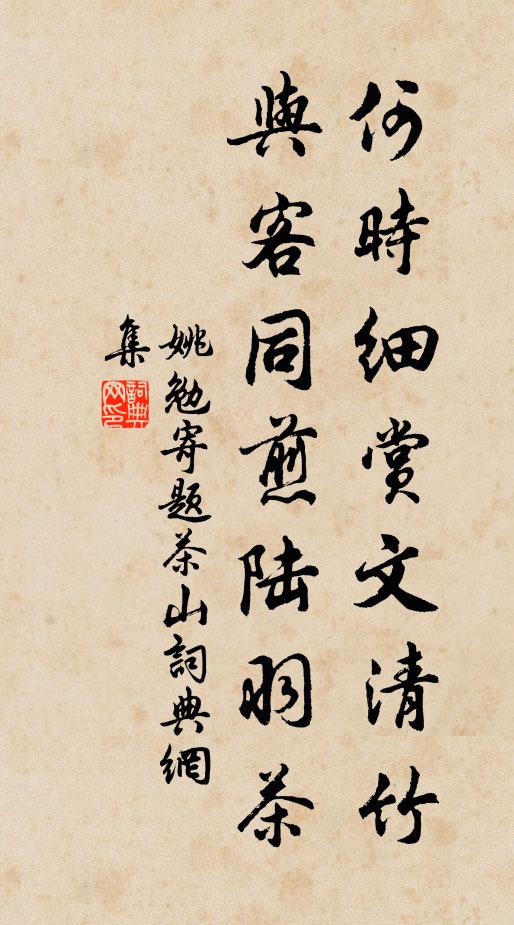 何時細賞文清竹
與客同煎陆羽茶
姚勉寄題茶山詞典網
集
詞典网印